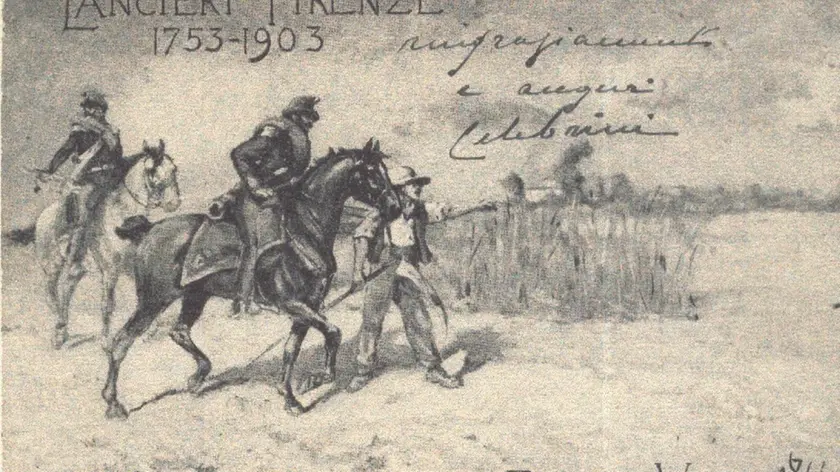 LANCIERI FIRENZE
1753-1903
ringraziamenti
e auguri
Celebrini